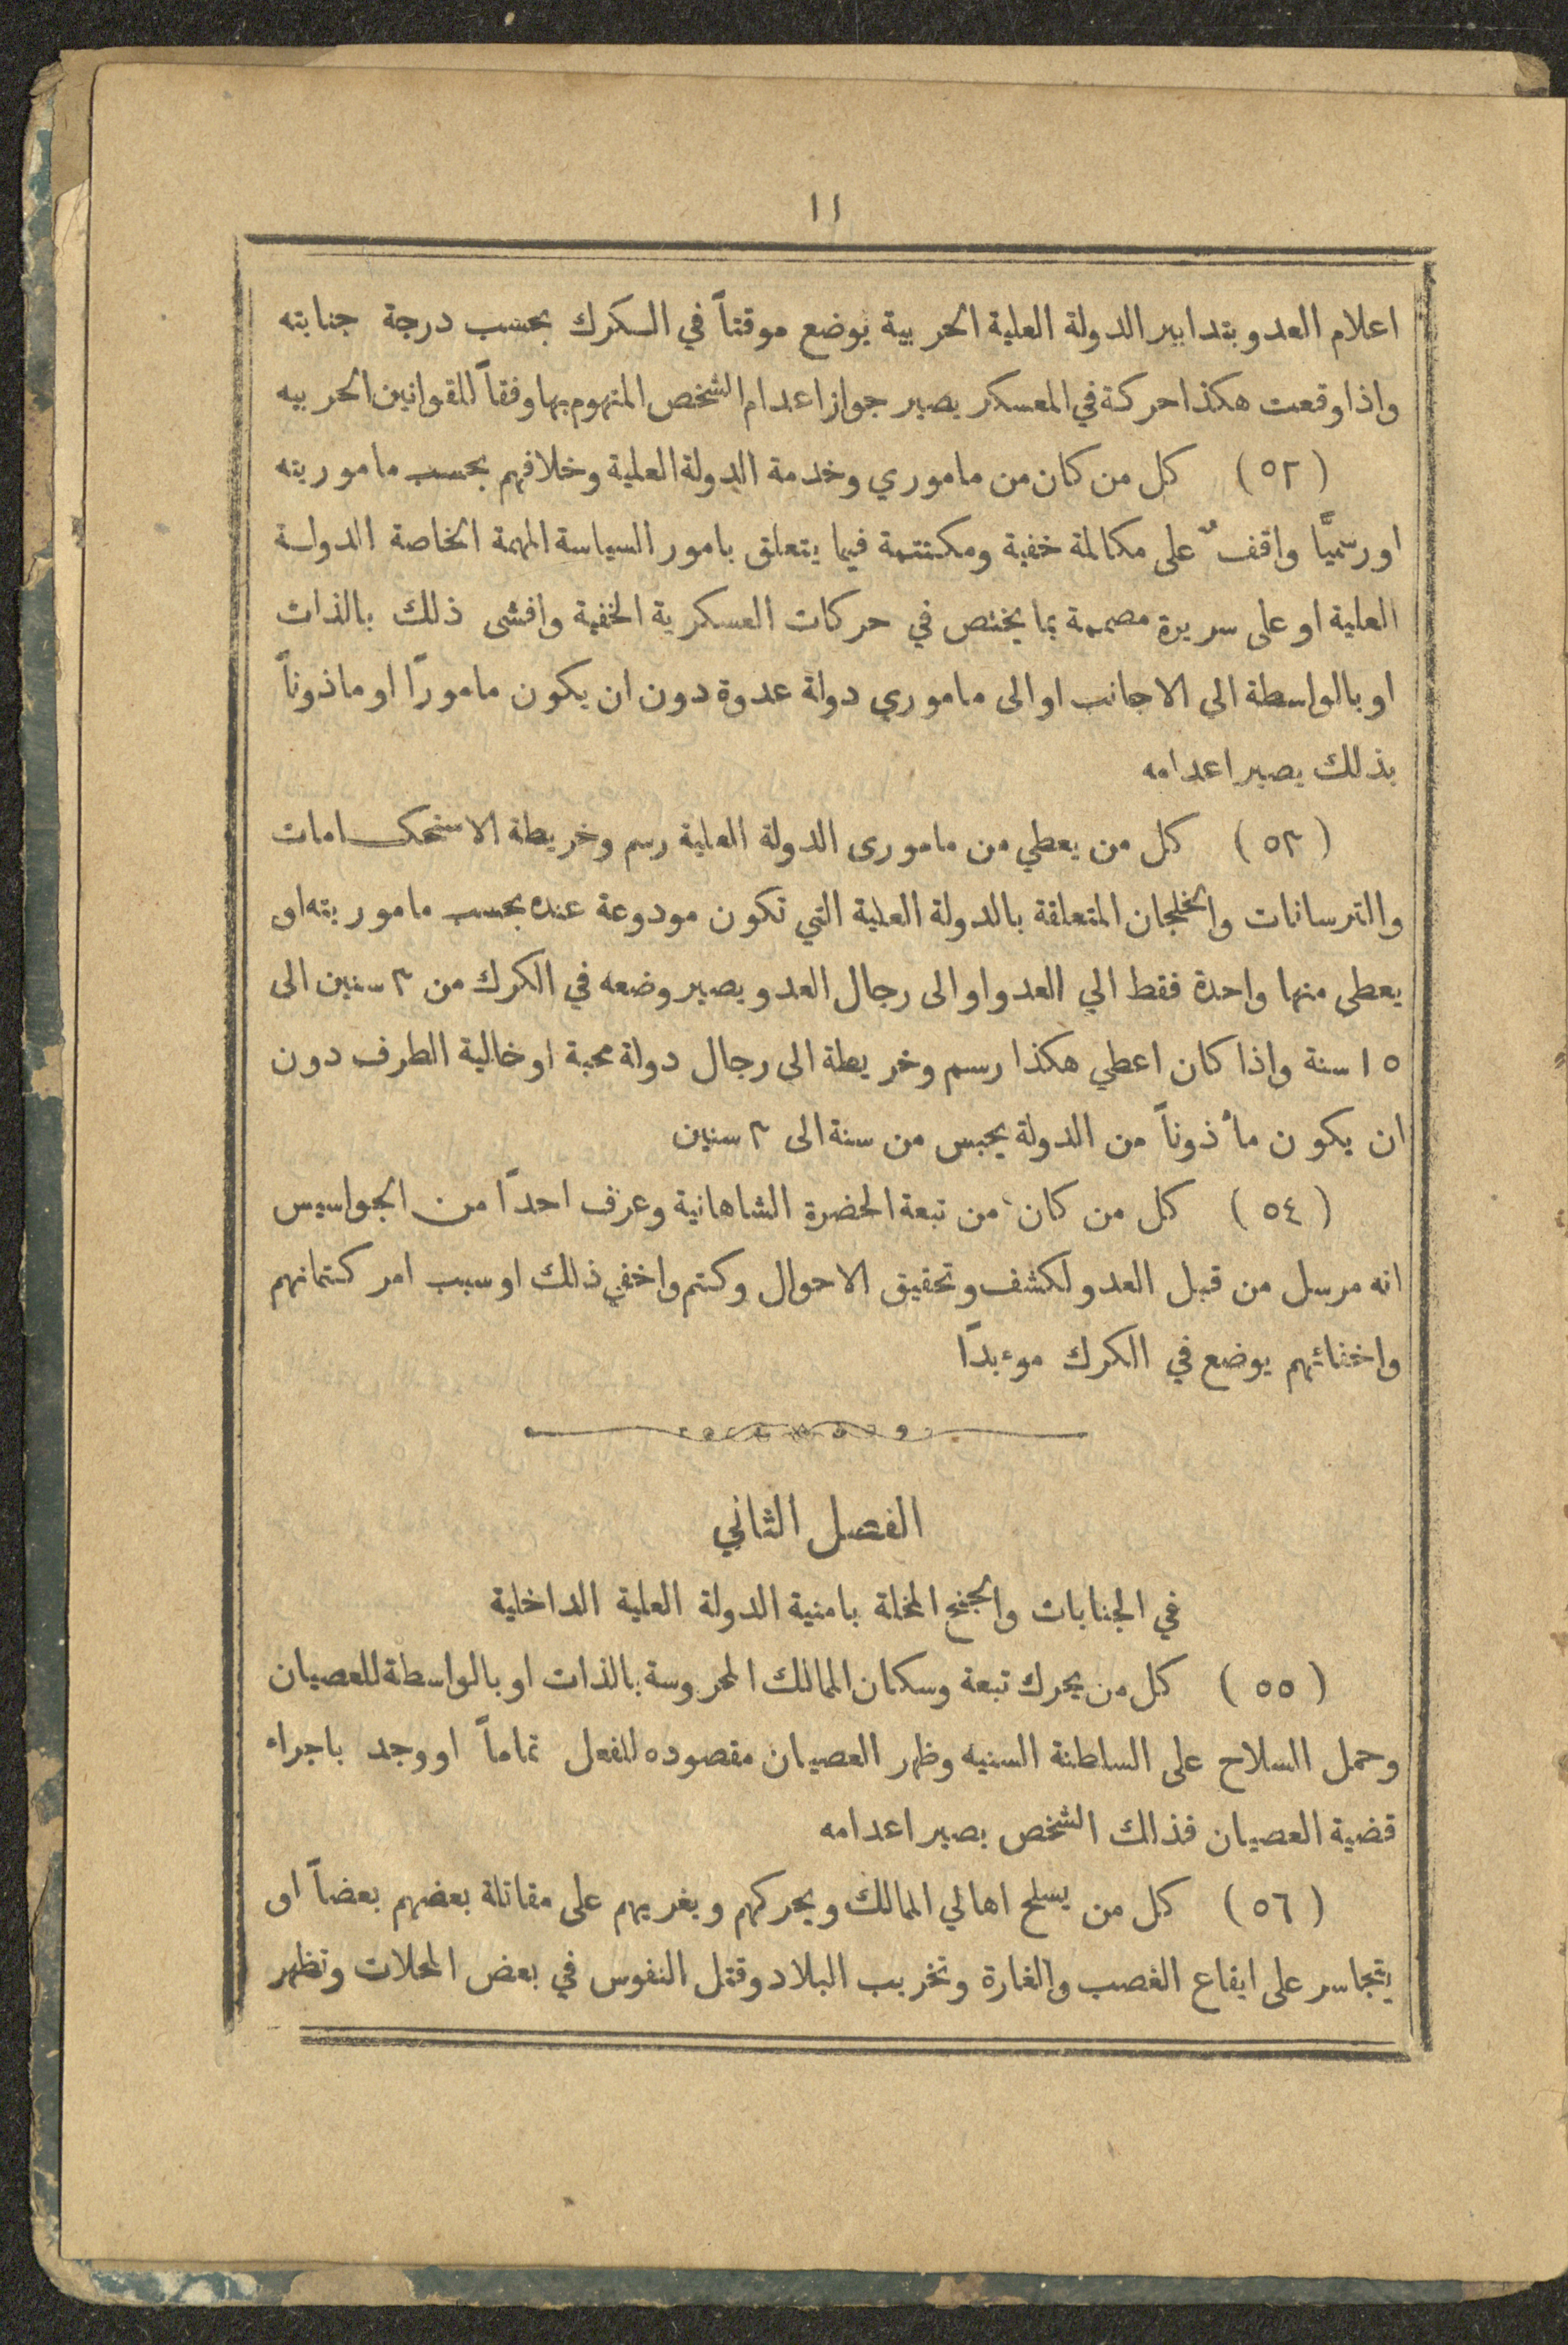 ١١
اعلام العدو بتدابير الدولة العلية الحربية يوضع موقتاً في السكرك بحسب درجة جنايته
واذا وقعت هكذا حركة في المعسكر يصير جواز اعدام الشخص المتهوم بها وفقاً للقوانين الحربيه
(٥٢) كل من كان من ماموري وخدمة الدولة العلية وخلافهم بحسب ماموريته
او رسميًّا واقفٌ على مكالمة خفية ومكتتمة فيما يتعلق بامور السياسة المهمة الخاصة الدولة
العلية او على سريرة مصممة بما يختص في حركات العسكرية الخفية وافشى ذلك بالذات
او بالواسطة الى الاجانب او الى ماموري دولة عدوة دون ان يكون مامورًا او ماذوناً
بذلك يصير اعدامه
(٥٣) كل من يعطي من مامورى الدولة العلية رسم وخريطة الاستحكامات
والترسانات والخلجان المتعلقة بالدولة العلية التي تكون مودوعة عنده بحسب ماموريته او
يعطى منها واحدة فقط الي العدو او الى رجال العدو يصير وضعه في الكرك من ٣ سنين الى
١٥ سنة واذا كان اعطي هكذا رسم وخريطة الى رجال دولة محبة او خالية الطرف دون
ان يكون مأذوناً من الدولة يحبس من سنة الى ٣ سنين
(٥٤) كل من كان من تبعة الحضرة الشاهانية وعرف احدًا من الجواسيس
انه مرسل من قبل العدو لكشف وتحقيق الاحوال وكتم واخفي ذلك او سبب امر كتمانهم
واخفائهم يوضع في الكرك موءبدًا
الفصل الثاني
في الجنايات والجنح المخلة بامنية الدولة العلية الداخلية
(٥٥) كل من يحرك تبعة وسكان الممالك المحروسة بالذات او بالواسطة للعصيان
وحمل السلاح على السلطنة السنيه وظهر العصيان مقصوده للفعل تماماً او وجد باجراء
قضية العصيان فذالك الشخص يصير اعدامه
(٥٦) كل من يسلح اهالي الممالك ويحركهم ويغريهم على مقاتلة بعضهم بعضاً او
يتجاسر على ايقاع الغصب والغارة وتخريب البلاد وقتل النفوس في بعض المحلات وتظهر